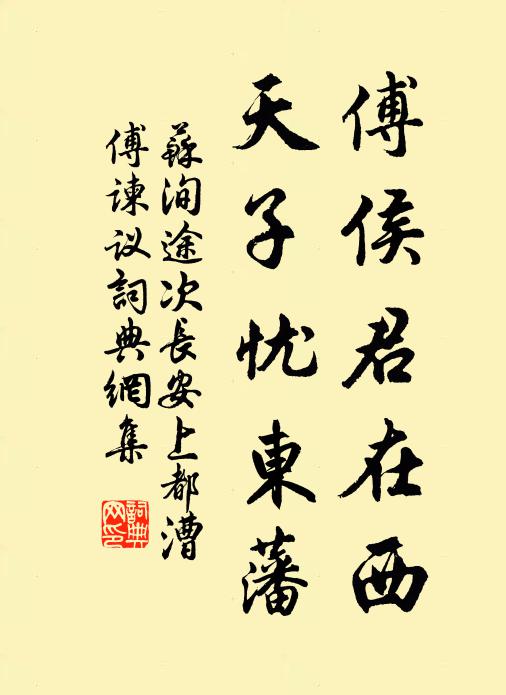 傅侯君在西
天子忧東藩
蘇洵途次長安上都漕
傅谏议詞典網集
詞典网印